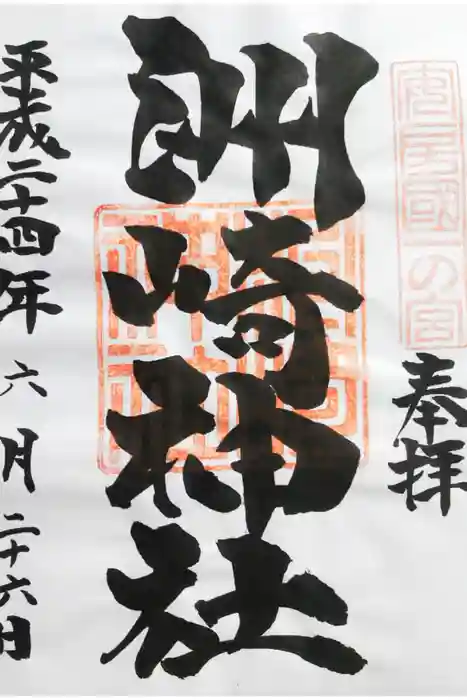 安房國一の宮
奉拝
洲崎神社
平成二十四年六月二十六日